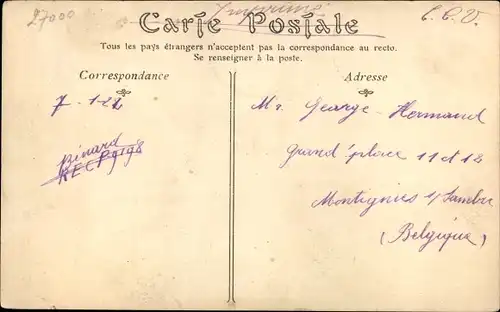 27000
Imprimé
C.C.V.
Carte Postale
Tous les pays étrangers n'acceptent pas la correspondance au recto.
Se renseigner à la poste.
Correspondance
Adresse
7-1-22
Binard
RECP 9198
Mr. George-Hermand
Grand'place 11 et 12
Montignies s/ Sambre
(Belgique)